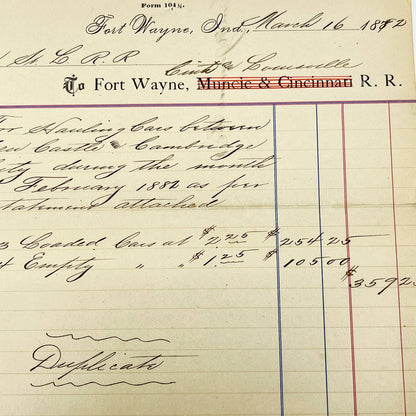 Form 104½.
Fort Wayne, Ind., March 16 1882
St. L R. R
Cin & Louisville
To Fort Wayne, Muncie & Cincinnati R. R.
For Hauling Cars between
New Castle & Cambridge
City during the month
February 1882 as per
Statement attached
3 Loaded Cars at $2.25 $254 25
4 Empty " " $1.25 $105 00
$3592
Duplicate